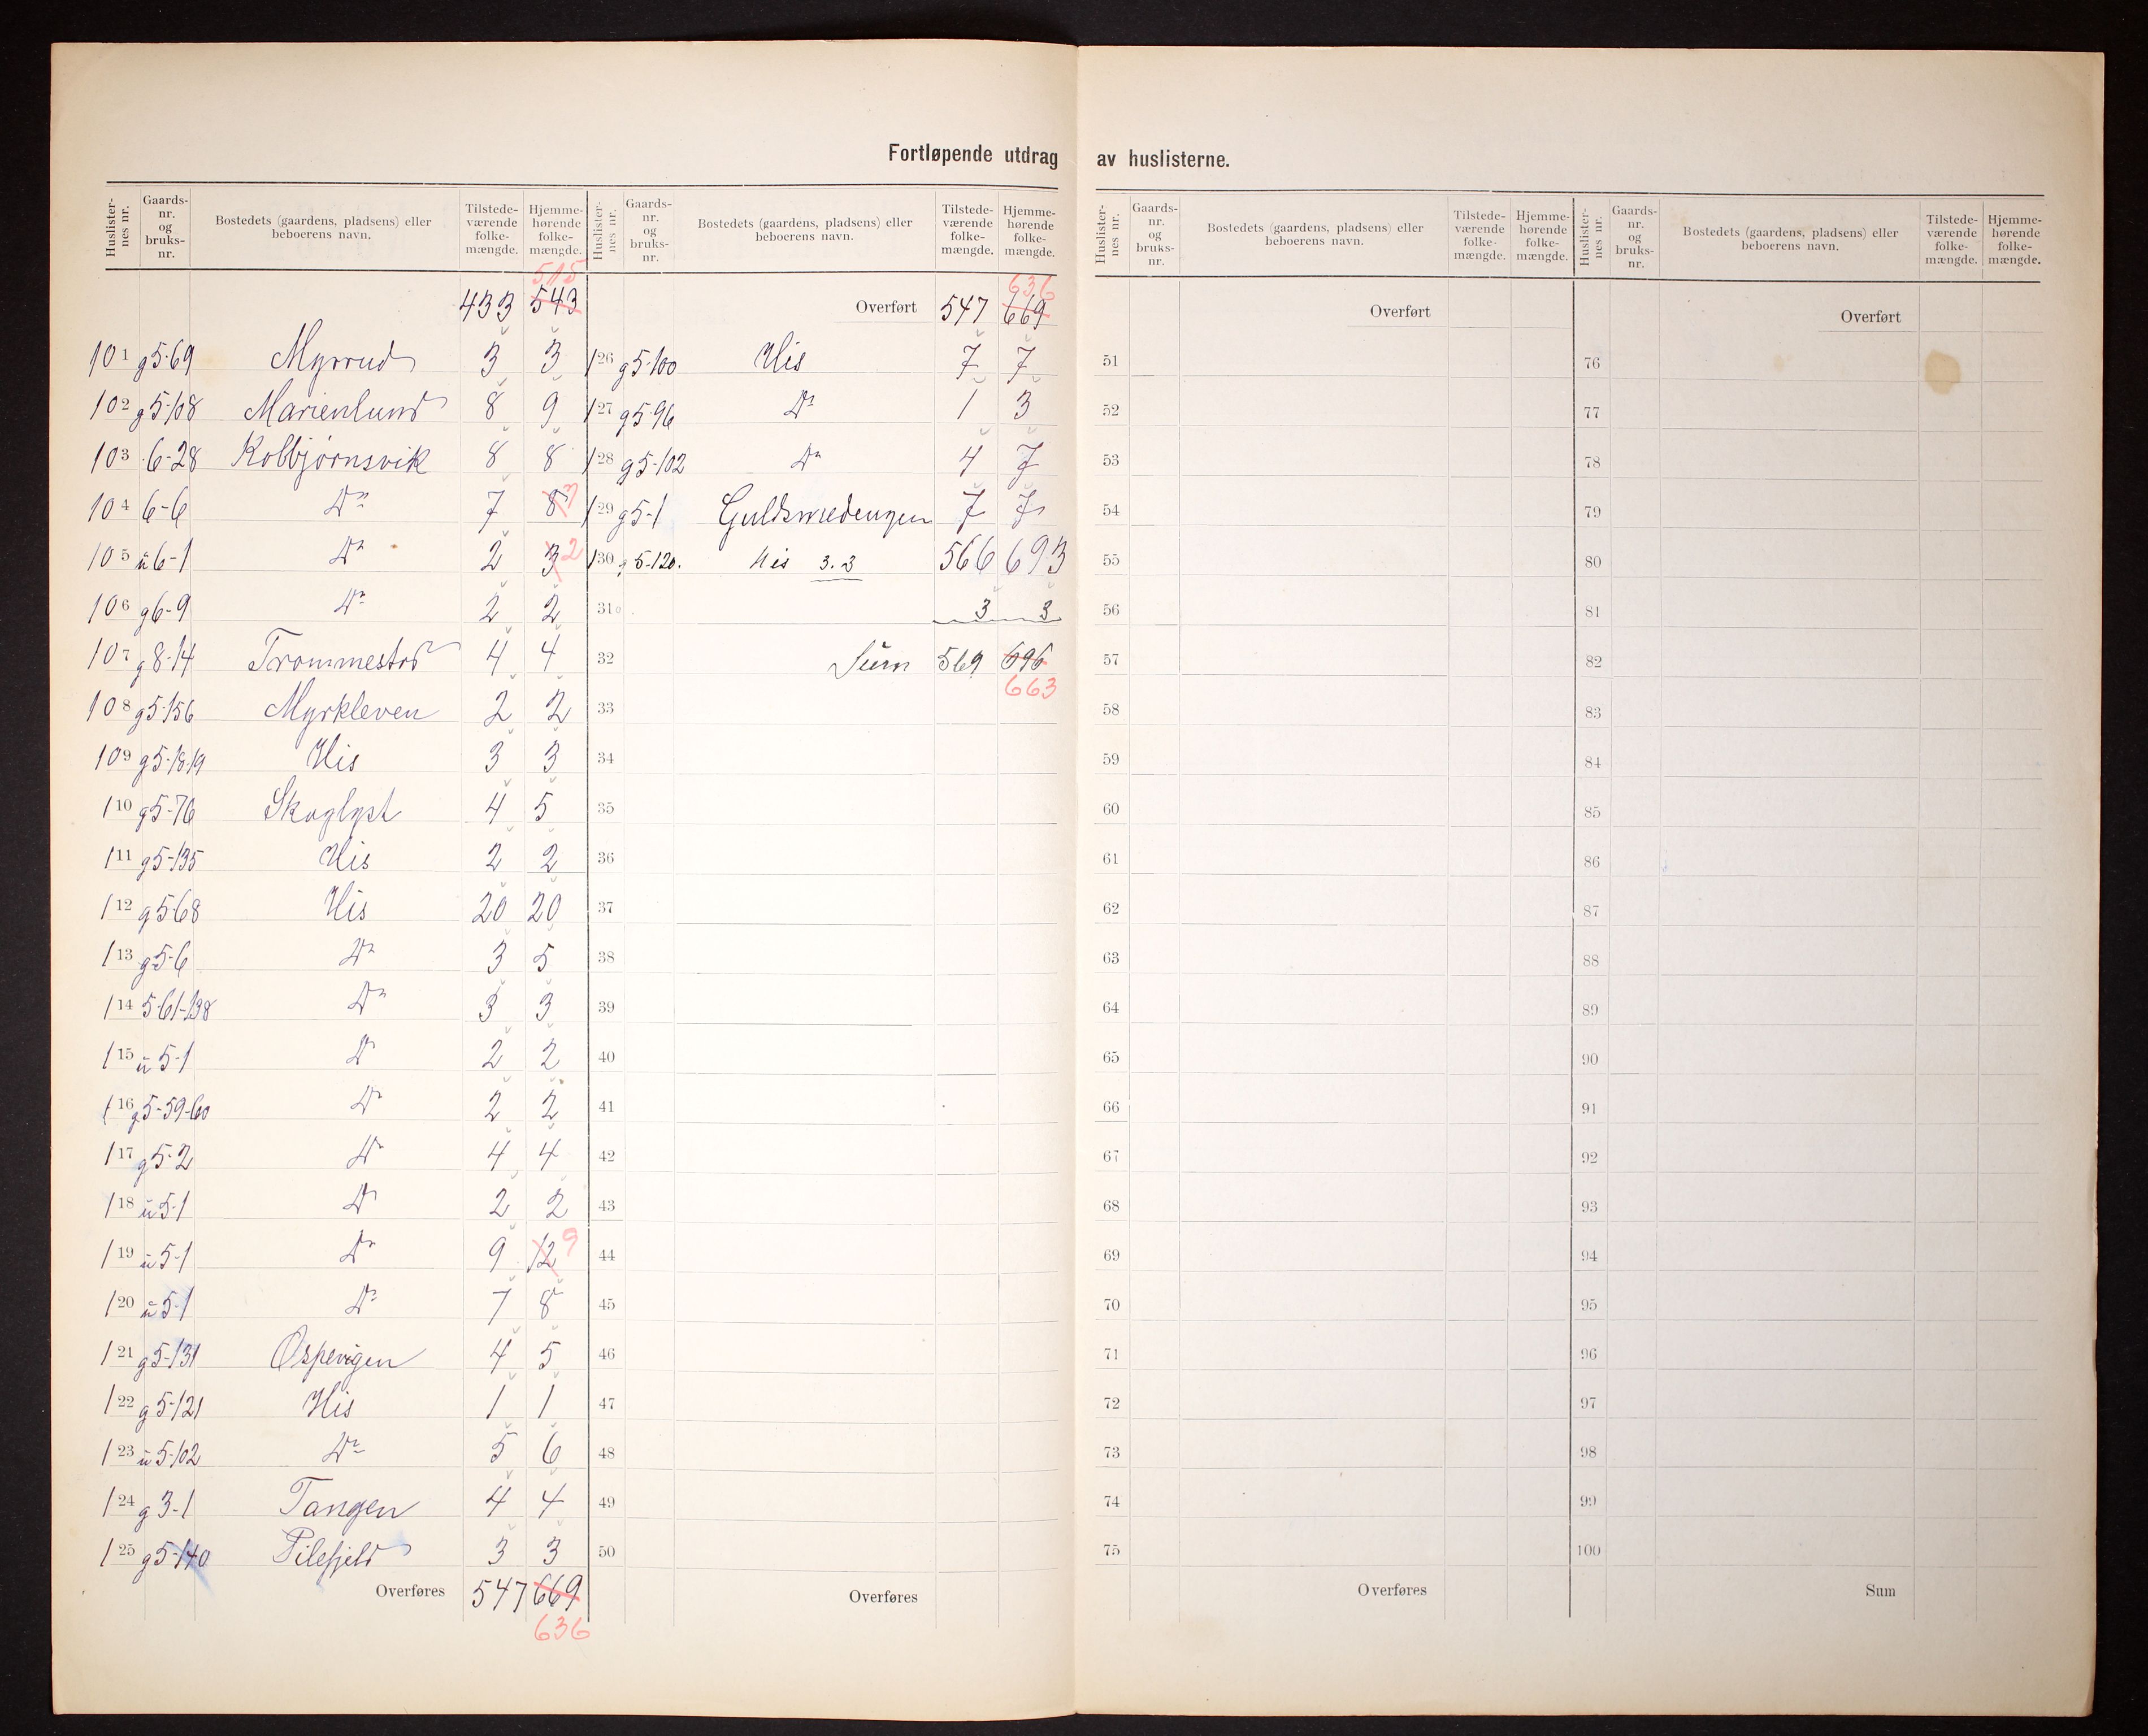 Fortløpende utdrag av huslisternes.
Huslister-nes nr. Gaards-nr. og bruks-nr. Bostedets (gaardens, pladsens) eller beboerens navn. Tilstede-værende folke-mængde. Hjemme-hørende folke-mængde.
515
433 543
101 g5-69 Myrrud 3 3
102 g5-108 Marienlund 8 9
103 6-28 Kolbjørnsvik 8 8
104 6-6 Do 7 8 7
105 u6-1 Do 2 3 2
106 g6-9 Do 2 2
107 g8-14 Trommestad 4 4
108 g5-156 Myrkleven 2 2
109 g5-18-19 His 3 3
110 g5-76 Skoglyst 4 5
111 g5-135 His 2 2
112 g5-68 His 20 20
113 g5-6 Do 3 5
114 5-61-138 Do 3 3
115 u5-1 Do 2 2
116 g5-59-60 Do 2 2
117 g5-2 Do 4 4
118 u5-1 Do 2 2
119 u5-1 Do 9 12 9
120 u5-1 Do 7 8
121 g5-131 Ospevigen 4 5
122 g5-121 His 1 1
123 u5-102 Do 5 6
124 g3-1 Tangen 4 4
125 g5-140 Pilefjeld 3 3
Overføres 547 669
636
Huslister-nes nr. Gaards-nr. og bruks-nr. Bostedets (gaardens, pladsens) eller beboerens navn. Tilstede-værende folke-mængde. Hjemme-hørende folke-mængde.
636
Overført 547 669
126 g5-100 His 7 7
127 g5-96 Do 1 3
128 g5-102 Do 4 7
129 g5-1 Guldsmedengen 7 7
130 g5-120. His 3.3 566 693
31 3 3
32 Sum 569 696
663
33
34
35
36
37
38
39
40
41
42
43
44
45
46
47
48
49
50
Overføres
Huslister-nes nr. Gaards-nr. og bruks-nr. Bostedets (gaardens, pladsens) eller beboerens navn. Tilstede-værende folke-mængde. Hjemme-hørende folke-mængde.
Overført
51
52
53
54
55
56
57
58
59
60
61
62
63
64
65
66
67
68
69
70
71
72
73
74
75
Overføres
Huslister-nes nr. Gaards-nr. og bruks-nr. Bostedets (gaardens, pladsens) eller beboerens navn. Tilstede-værende folke-mængde. Hjemme-hørende folke-mængde.
Overført
76
77
78
79
80
81
82
83
84
85
86
87
88
89
90
91
92
93
94
95
96
97
98
99
100
Sum